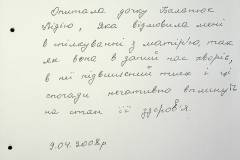 Опитала дочку Балатюк
Лідію, яка відмовила мені
в спілкуванні з матір'ю, так
як вона в даний час хворіє,
в неї підвищений тиск і ці
спогади негативно вплинуть
на стан її здоров'я.
9.04.2008р